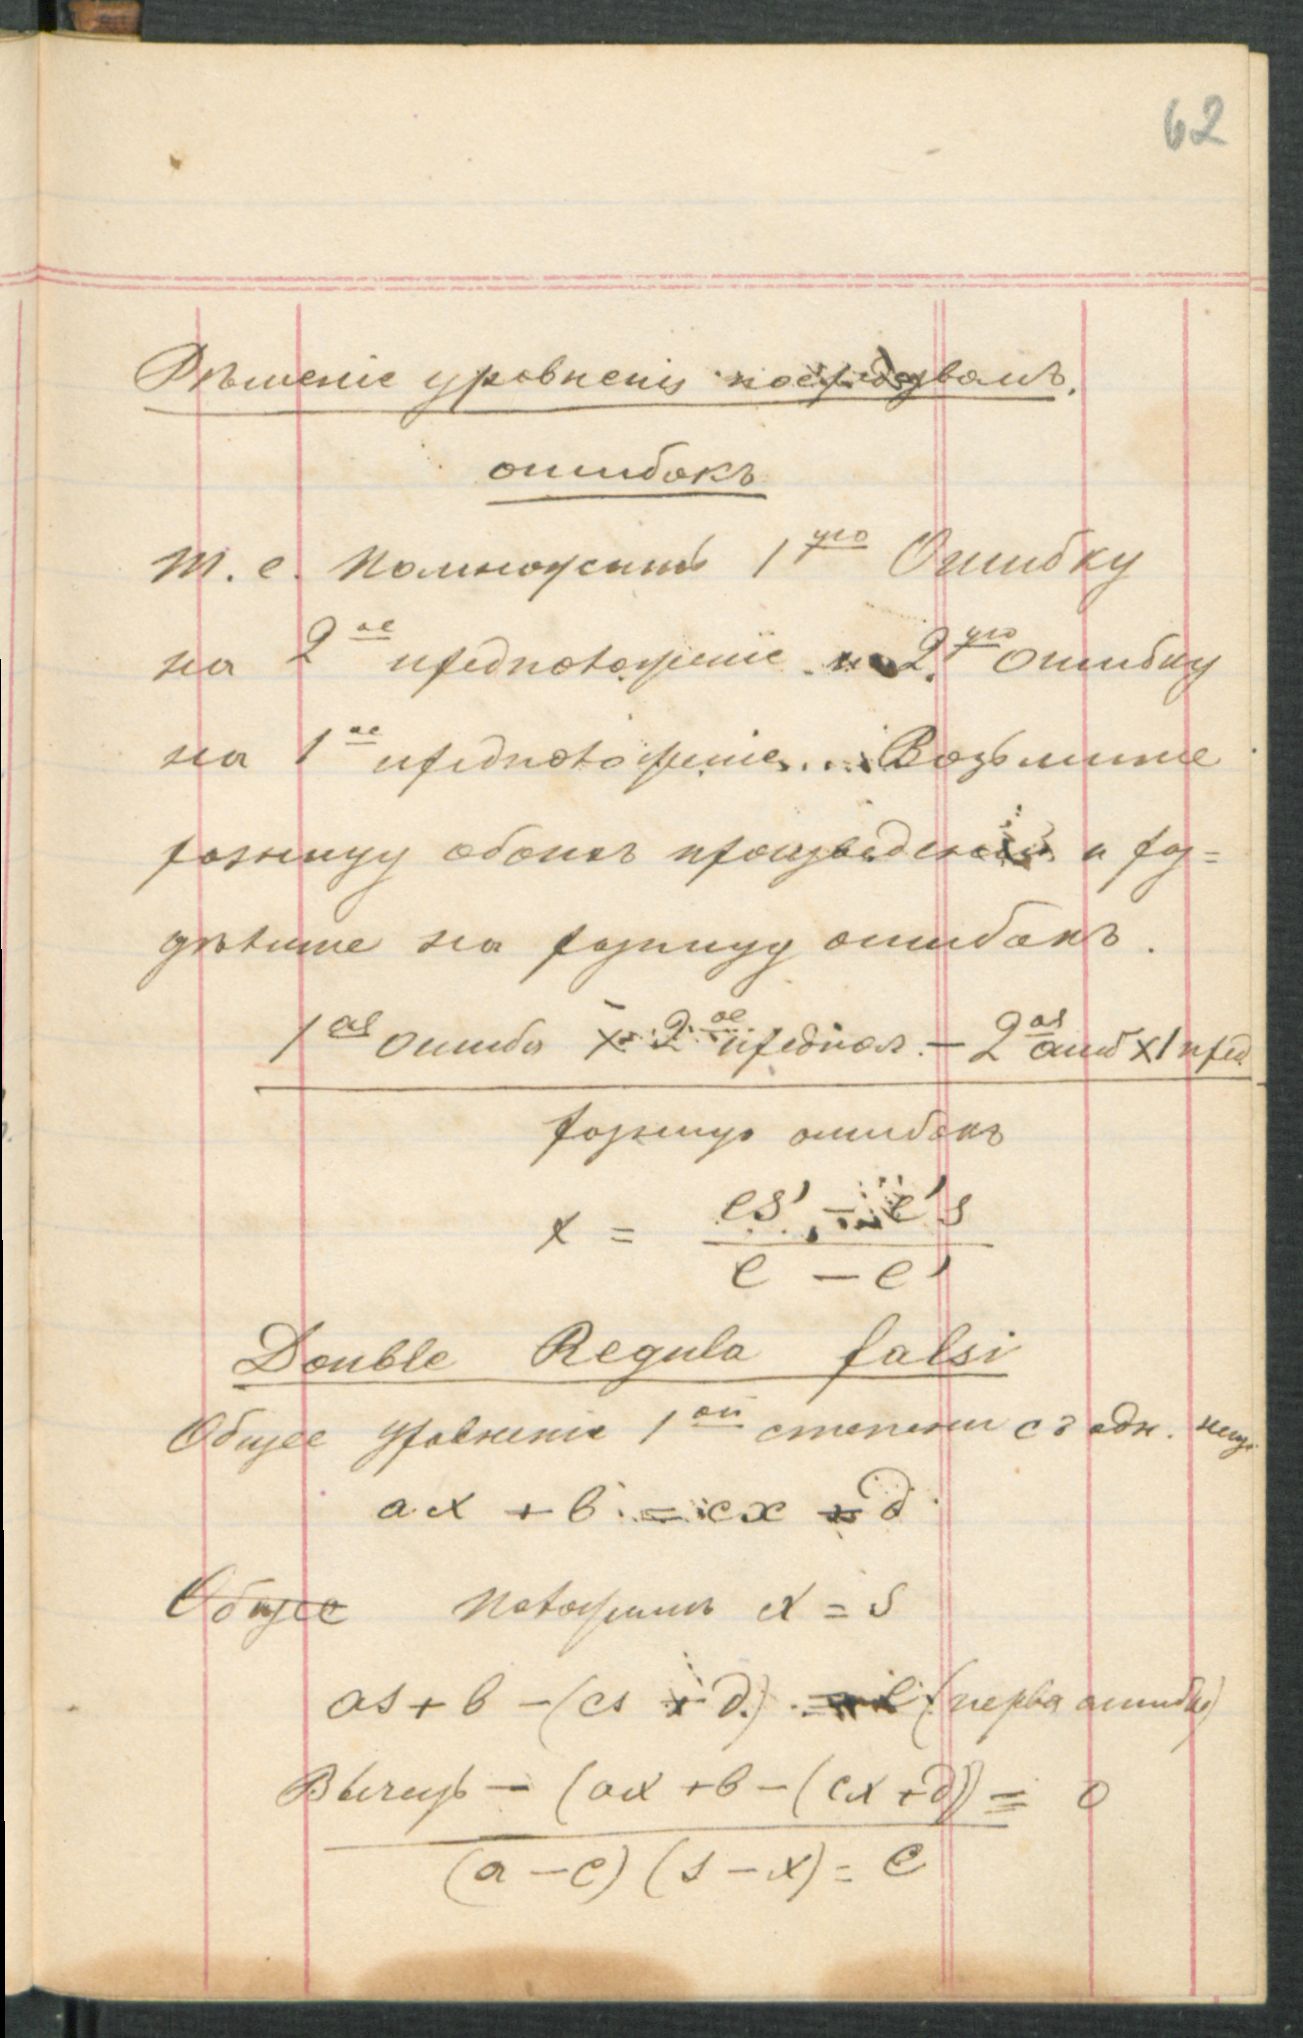 62
Рѣшеніе уровненія посредствомъ
ошибокъ
т. е. помножить 1ую Ошибку
на 2ое предположеніе и 2ую ошибку
на 1ое предположеніе... Возьмите
разницу обоихъ произведеній и раз=
дѣлите на разницу ошибокъ.
1ая ошибк x 2ое предпол. – 2ая ошиб x 1 пред
разницу ошибокъ
x = es' – e's
e – e'
Double Regula falsi
Общее уравненіе 1ой степени съ одн. неиз.
ax + b = cx + d
Общее Положимъ x = s
as + b – (cs + d) = e (первая ошибка)
Вычесть – (ax + b – (cx + d)) = 0
(a – c) (s – x) = e